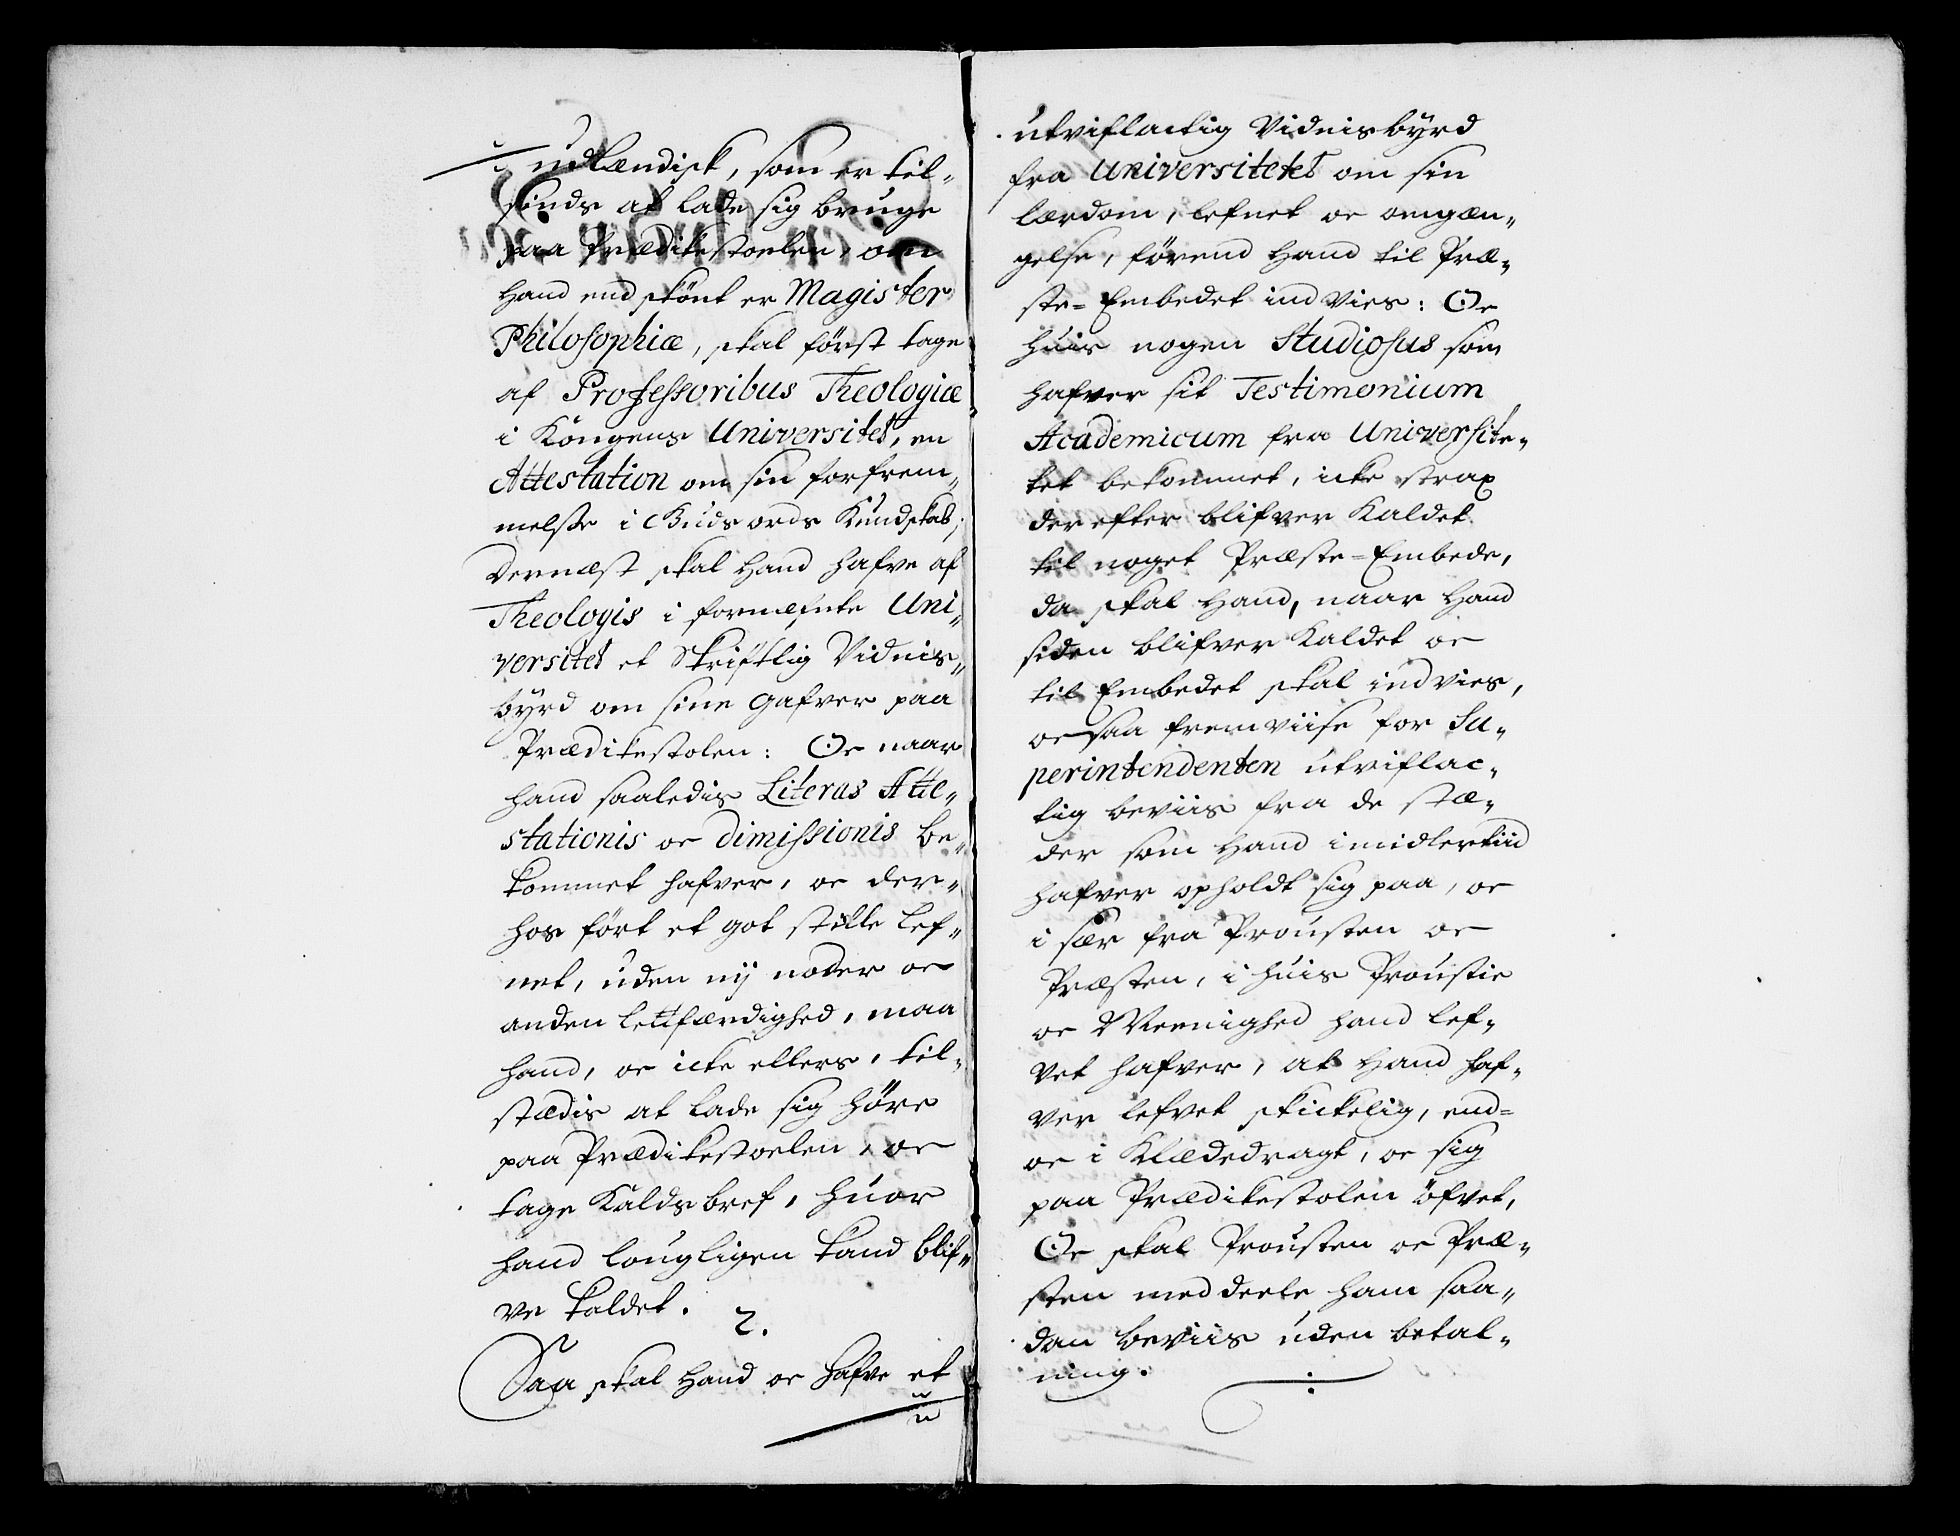 udlændisk, som er til„
sinds at lade sig bruge
paa Prædikestoelen, om
hand end skönt er Magister
Philosophiæ, skal först tage
af Professoribus Theologiæ
i Kongens Universitet, en
Attestation om sin forfrem„
melse i Guds ords Kundskab;
Dernæst skal hand hafve af
Theologis i formelte Uni„
versitet et Skriftlig Vidnis„
byrd om sine gafver paa
Prædikestolen: Oc naar
hand saaledis Literas Atte„
stationis oc dimissionis be„
kommet hafver, oc der„
hos fört et got stille lef„
net, uden nÿ noder oc
anden lettfærdighed, maa
hand, oc icke ellers, til„
stædis at lade sig höre
paa Prædikestoelen, oc
tage Kaldsbref, huor
hand lougligen kand blif„
ve kaldet.
2.
Saa skal hand oc hafve et
u
utviflactig Vidnisbyrd
fra Universitetet om sin
lærdom, lefnet oc omgæn„
gelse, förend hand til Præ„
ste=Embedet indvies: Oc
huis nogen Studiosus som
hafver sit Testimonium
Academicum fra Universite„
tet bekommet, icke strax
derefter blifver Kaldet
til noget Præste=Embede,
da skal hand, naar hand
siden blifver Kaldet oc
til Embedet skal indvies,
ocsaa fremviise for Su„
perintendenten utviflac„
tig beviis fra de stæ„
der som hand imidlertiid
hafver opholdt sig paa, oc
i sær fra Prousten oc
Præsten, i huis Proustie
oc Meenighed hand lef„
vet hafver, at hand haf„
ver lefvet skickelig, end=
oc i Klædedragt, oc sig
paa Prædikestolen öfvet,
Oc skal Prousten oc Præ„
sten meddeele ham saa„
dan beviis uden betal„
ning.